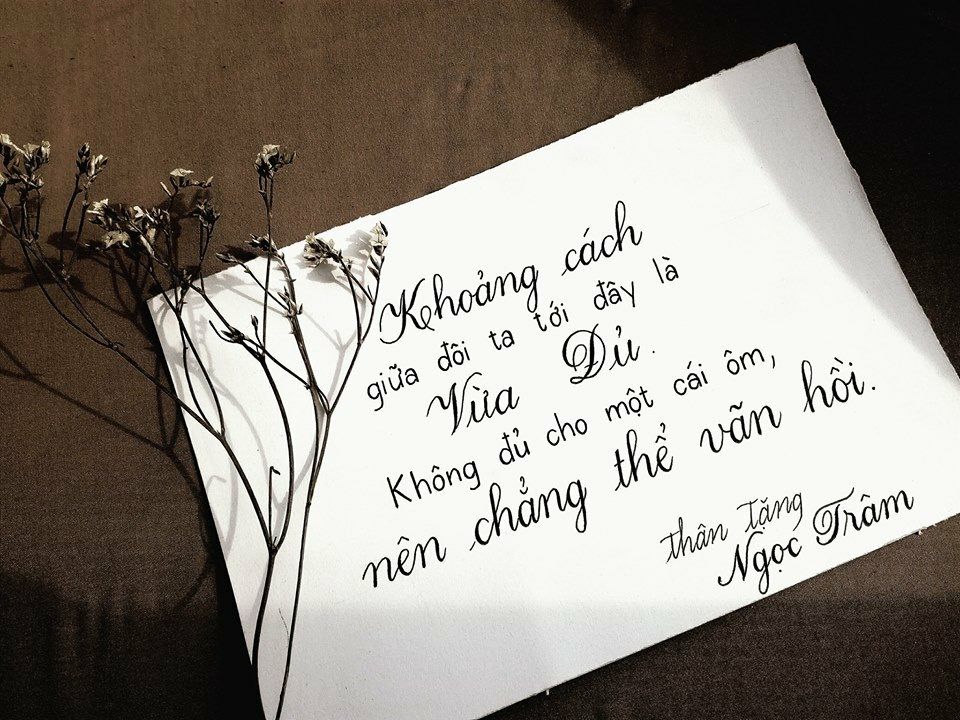 Khoảng cách
giữa đôi ta tới đây là
Vừa Đủ.
Không đủ cho một cái ôm,
nên chẳng thể vãn hồi.
thân tặng
Ngọc Trâm